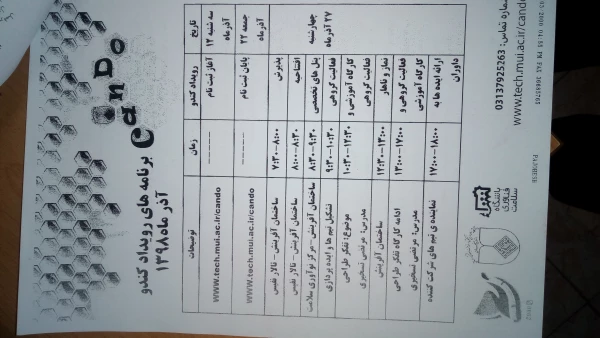 CanDo
برنامه های رویداد کندو
آذر ماه ۱۳۹۸
تاریخ رویداد کندو زمان توضیحات
سه شنبه ۱۲ آذر ماه آغاز ثبت نام ------ www.tech.mui.ac.ir/cando
جمعه ۲۲ آذر ماه پایان ثبت نام ------ www.tech.mui.ac.ir/cando
چهارشنبه ۲۷ آذر ماه
پذیرش ۷:۳۰-۸:۰۰ ساختمان آفرینش - تالار نفیس
افتتاحیه ۸:۰۰-۸:۳۰ ساختمان آفرینش - تالار نفیس
پنل های تخصصی ۸:۳۰-۹:۳۰ ساختمان آفرینش - مرکز نوآوری سلامت
فعالیت گروهی ۹:۳۰-۱۰:۳۰ تشکیل تیم ها و ایده پردازی
کارگاه آموزشی و فعالیت گروهی ۱۰:۳۰-۱۲:۳۰ موضوع: تفکر طراحی
مدرس: مرتضی
نماز و ناهار ۱۲:۳۰-۱۳:۰۰ ساختمان آفرینش
فعالیت گروهی و کارگاه آموزشی ۱۳:۰۰-۱۷:۰۰ ادامه کارگاه تفکر طراحی
مدرس: مرتضی
ارائه ایده ها به داوران ۱۷:۰۰-۱۸:۰۰ نماینده ی تیم های شرکت کننده
شماره تماس: 03137925263
www.tech.mui.ac.ir/cando
باشگاه
فناوری
سلامت